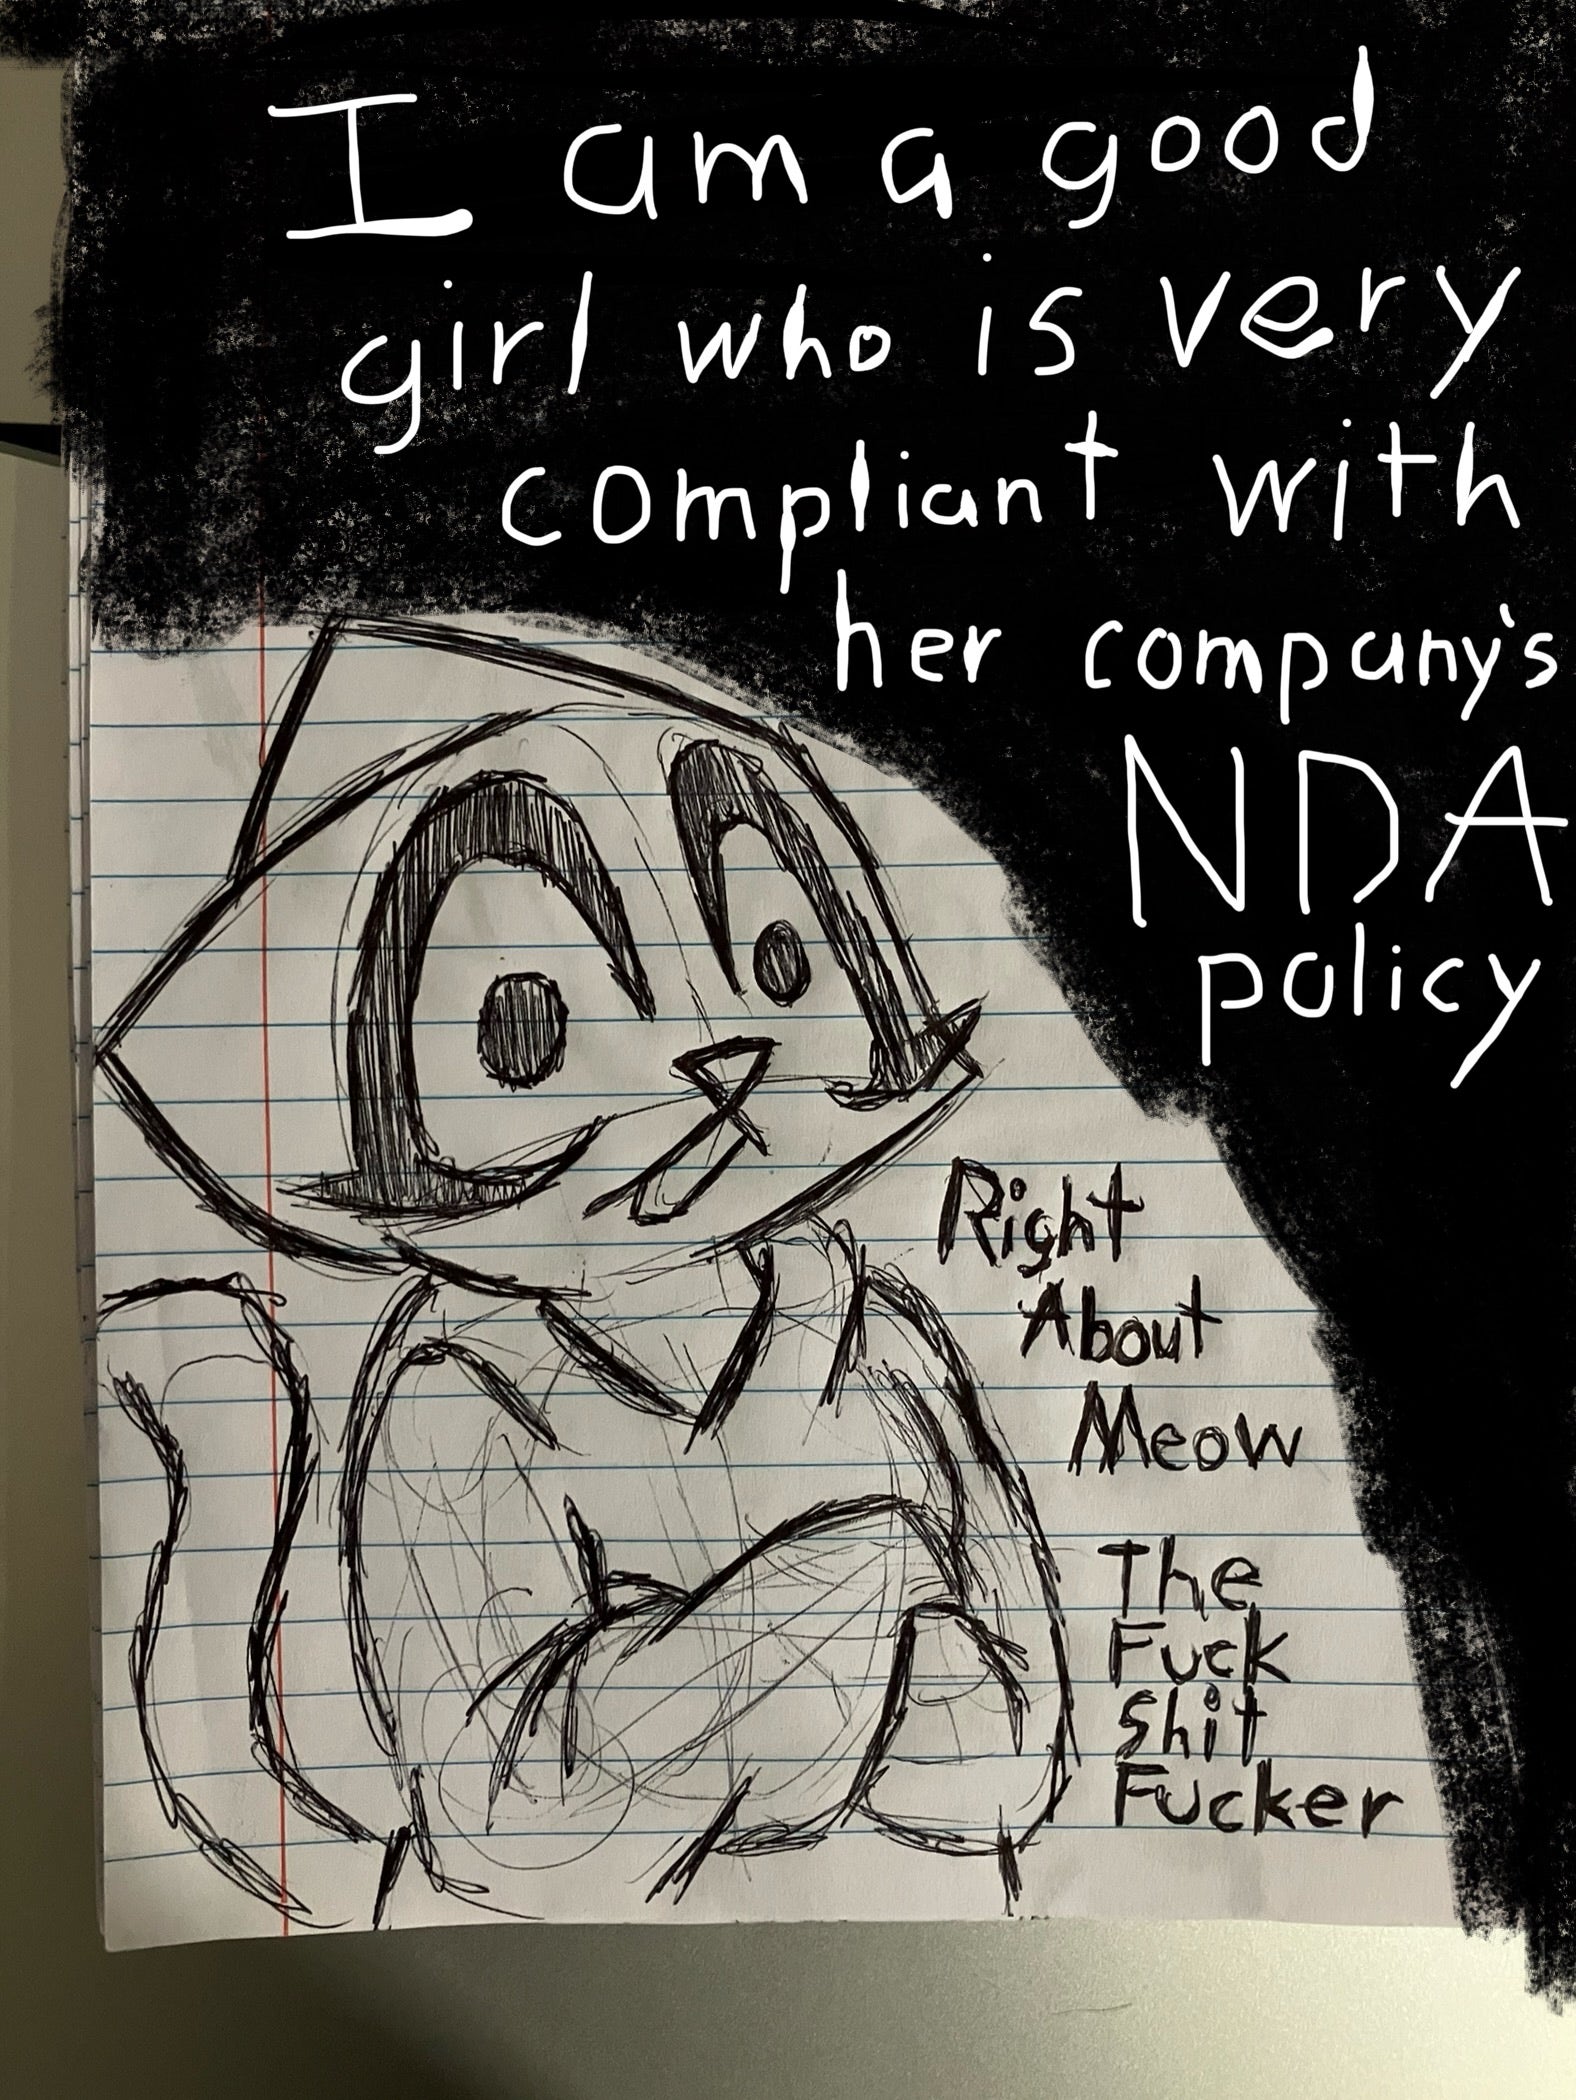 I am a good
girl who is very
compliant with
her company's
NDA
policy
Right
About
Meow
The
Fuck
Shit
Fucker